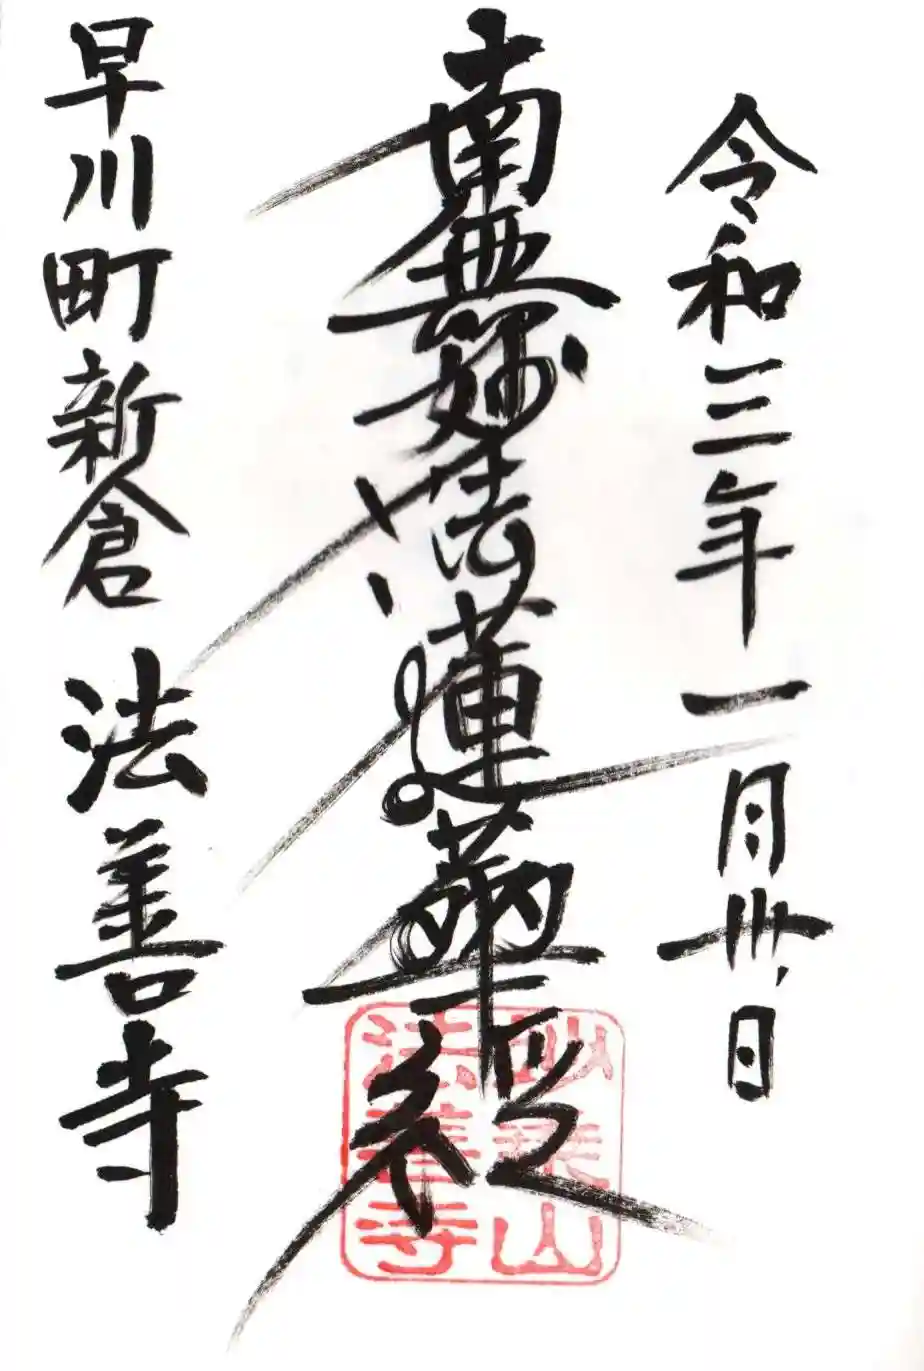 令和三年一月卅日
南無妙法蓮華経
早川町新倉 法善寺
妙乗山
法善寺